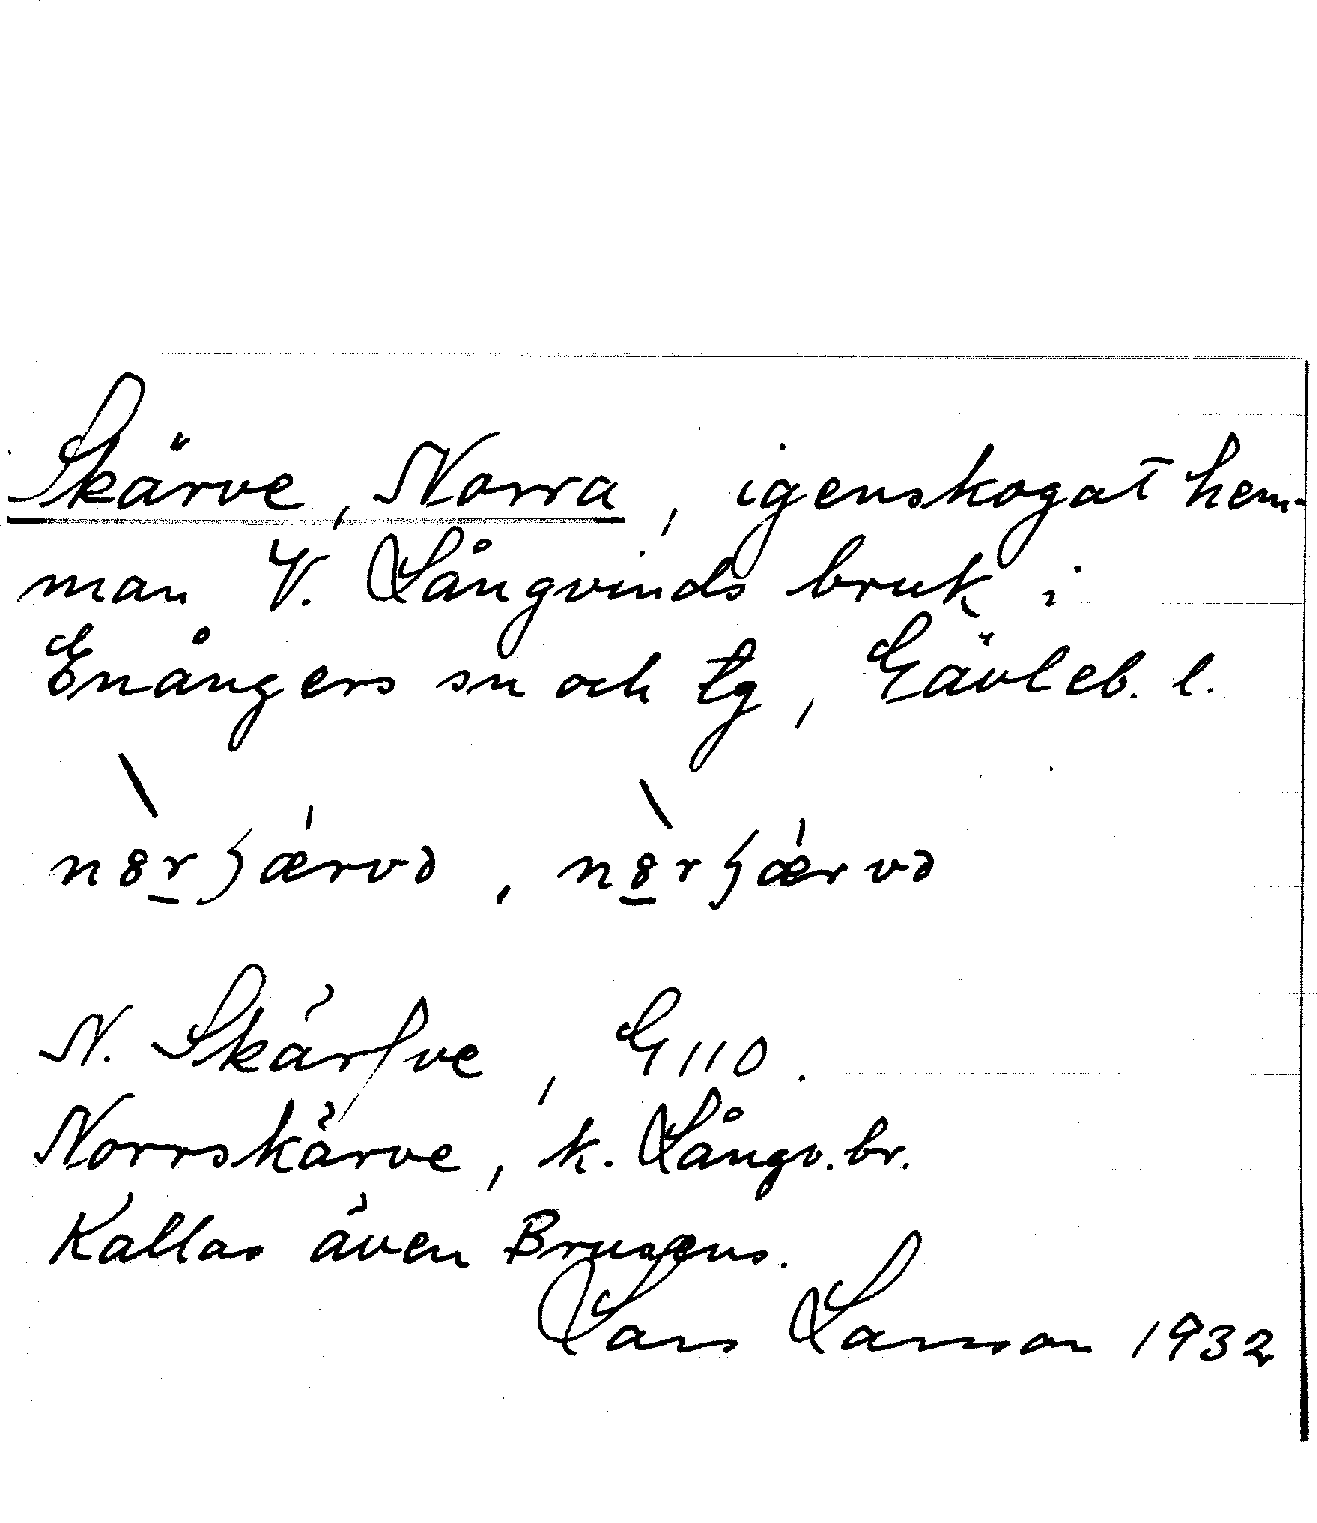 Skärve, Norra, igenskogat hem-
man V. Långvinds bruk i
Enångers sn och tg, Gävleb. l.
N. Skärfve, G 110.
Norrskärve, k. Långv. br.
Kallas även Brusens.
Lars Larsson 1932